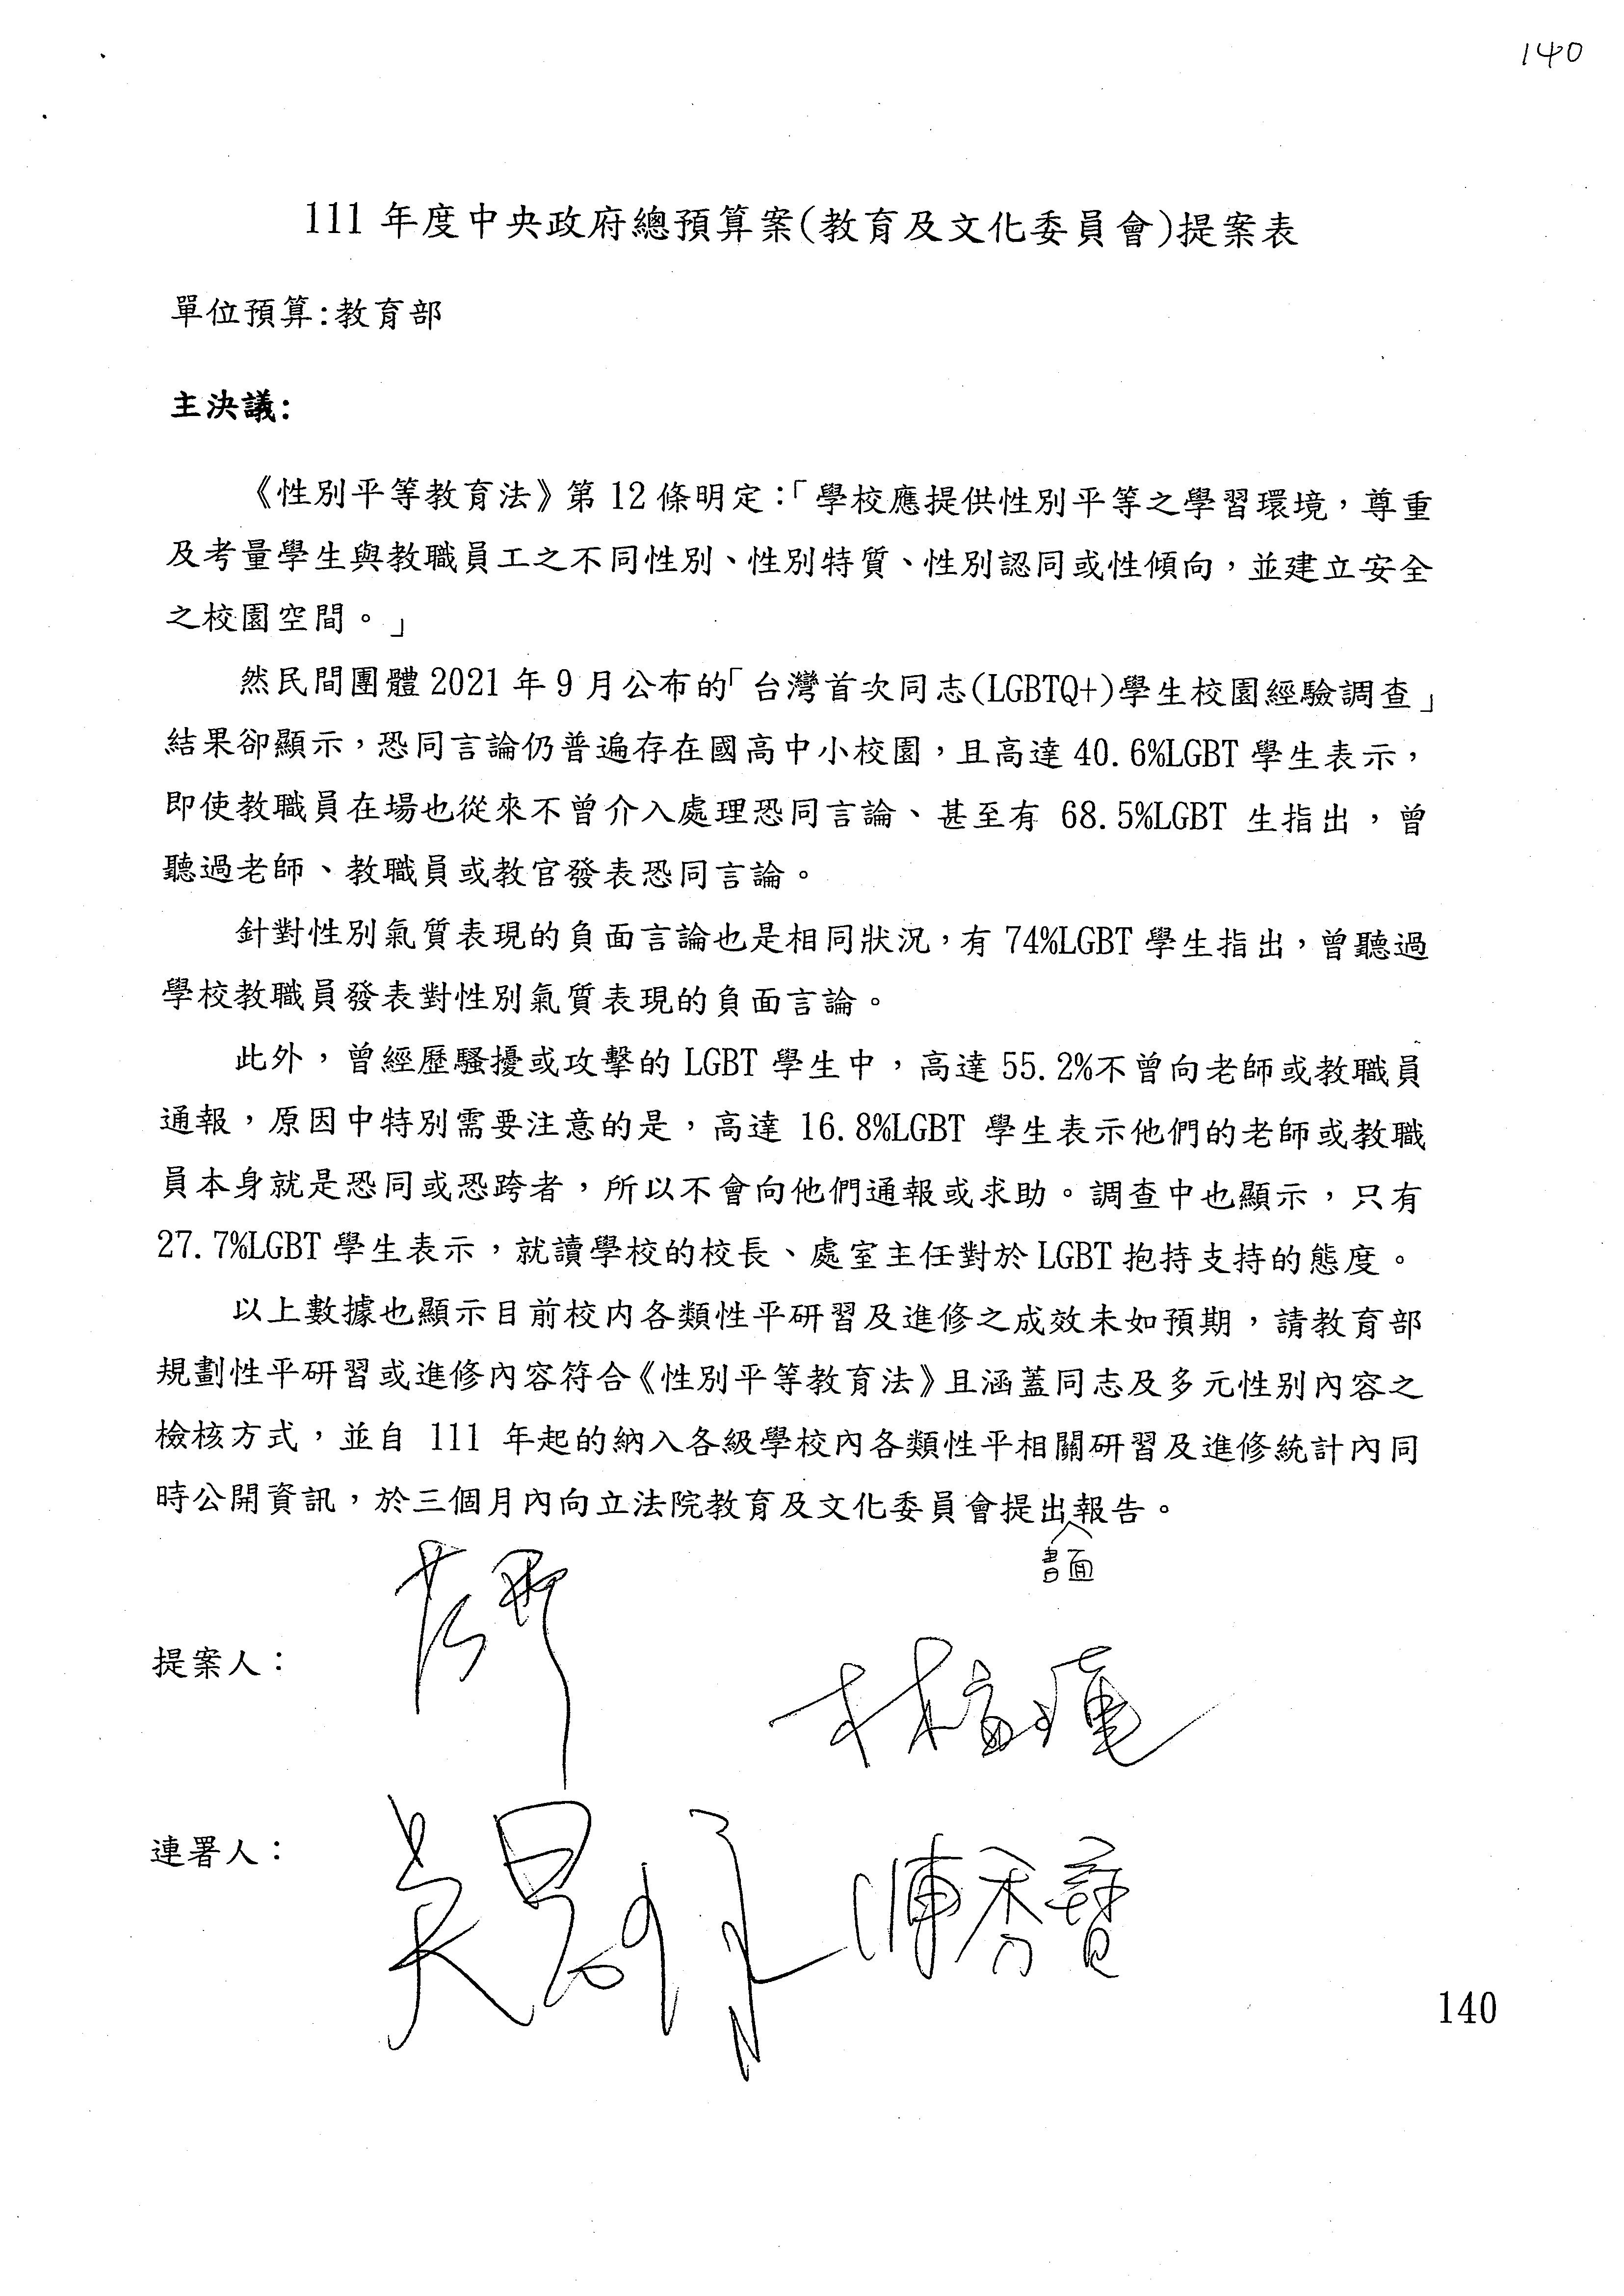 140
111 年度中央政府總預算案(教育及文化委員會)提案表
單位預算:教育部
主決議:
《性別平等教育法》第 12 條明定:「學校應提供性別平等之學習環境，尊重
及考量學生與教職員工之不同性別、性別特質、性別認同或性傾向，並建立安全
之校園空間。」
然民間團體 2021 年 9 月公布的「台灣首次同志(LGBTQ+)學生校園經驗調查」
結果卻顯示，恐同言論仍普遍存在國高中小校園，且高達 40.6%LGBT 學生表示，
即使教職員在場也從來不曾介入處理恐同言論、甚至有 68.5%LGBT 生指出，曾
聽過老師、教職員或教官發表恐同言論。
針對性別氣質表現的負面言論也是相同狀況，有 74%LGBT 學生指出，曾聽過
學校教職員發表對性別氣質表現的負面言論。
此外，曾經歷騷擾或攻擊的 LGBT 學生中，高達 55.2%不曾向老師或教職員
通報，原因中特別需要注意的是，高達 16.8%LGBT 學生表示他們的老師或教職
員本身就是恐同或恐跨者，所以不會向他們通報或求助。調查中也顯示，只有
27.7%LGBT 學生表示，就讀學校的校長、處室主任對於 LGBT 抱持支持的態度。
以上數據也顯示目前校內各類性平研習及進修之成效未如預期，請教育部
規劃性平研習或進修內容符合《性別平等教育法》且涵蓋同志及多元性別內容之
檢核方式，並自 111 年起的納入各級學校內各類性平相關研習及進修統計內同
時公開資訊，於三個月內向立法院教育及文化委員會提出報告。
書面
提案人:
林宜瑾
連署人:
陳秀寳
140